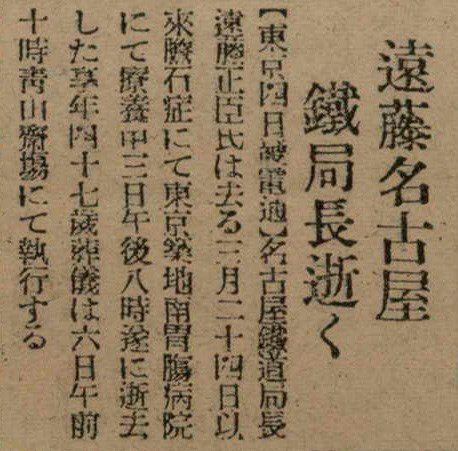 遠藤名古屋
鐵局長逝く
【東京四日發電通】名古屋鐵道局長
遠藤正臣氏は去る三月二十四日以
來膽石症にて東京築地南胃腸病院
にて療養中三日午後八時遂に逝去
した享年四十七歲葬儀は六日午前
十時靑山齋場にて執行する